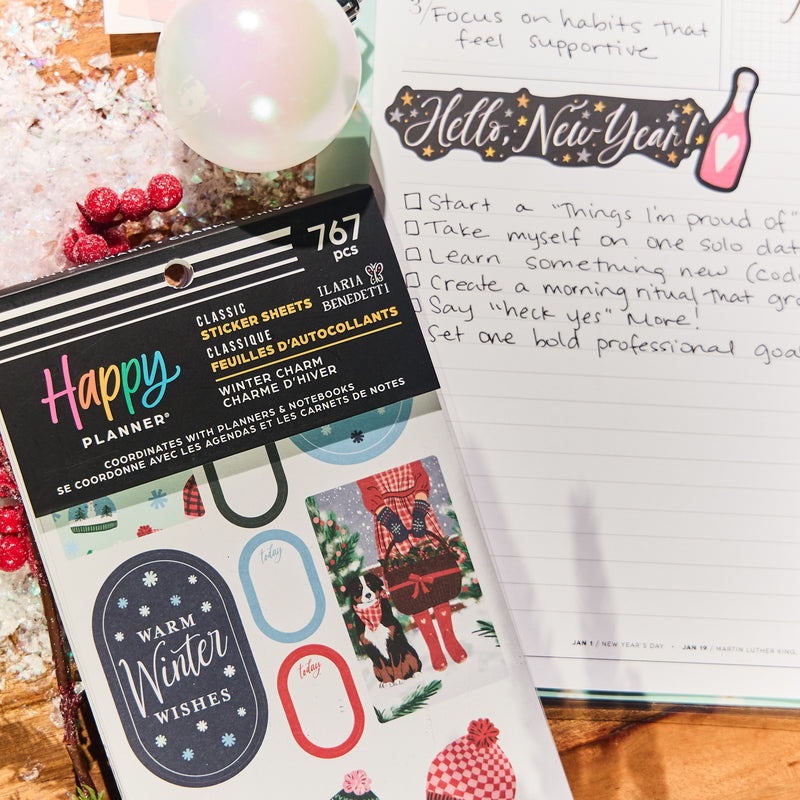 3/Focus on habits that
feel supportive
Hello, New Year!
Start a "Things I'm proud of"
Take myself on one solo dat
Learn something new (cod
Create a morning ritual that gr
Say "heck yes" More!
Set one bold professional goa
JAN 1 / NEW YEAR'S DAY • JAN 19 / MARTIN LUTHER KING,
767
pcs
CLASSIC
STICKER SHEETS
CLASSIQUE
FEUILLES D'AUTOCOLLANTS
ILARIA
BENEDETTI
WINTER CHARM
CHARME D'HIVER
Happy
PLANNER®
COORDINATES WITH PLANNERS & NOTEBOOKS
SE COORDONNE AVEC LES AGENDAS ET LES CARNETS DE NOTES
today
WARM
Winter
WISHES
today